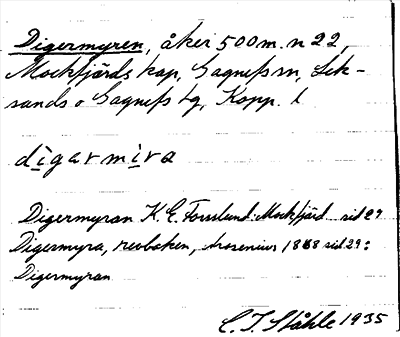 Digermyren, åker 500 m. n 22,
Mockfjärds kap, Gagnefs sn, Lek-
sands o Gagnefs tg, Kopp. l
digarmira
Digermyran K. E. Forsslund: Mockfjärd sid 29
Digermyra, revboken, Arosenius 1868 sid 29:
Digermyran
C. I. Ståhle 1935